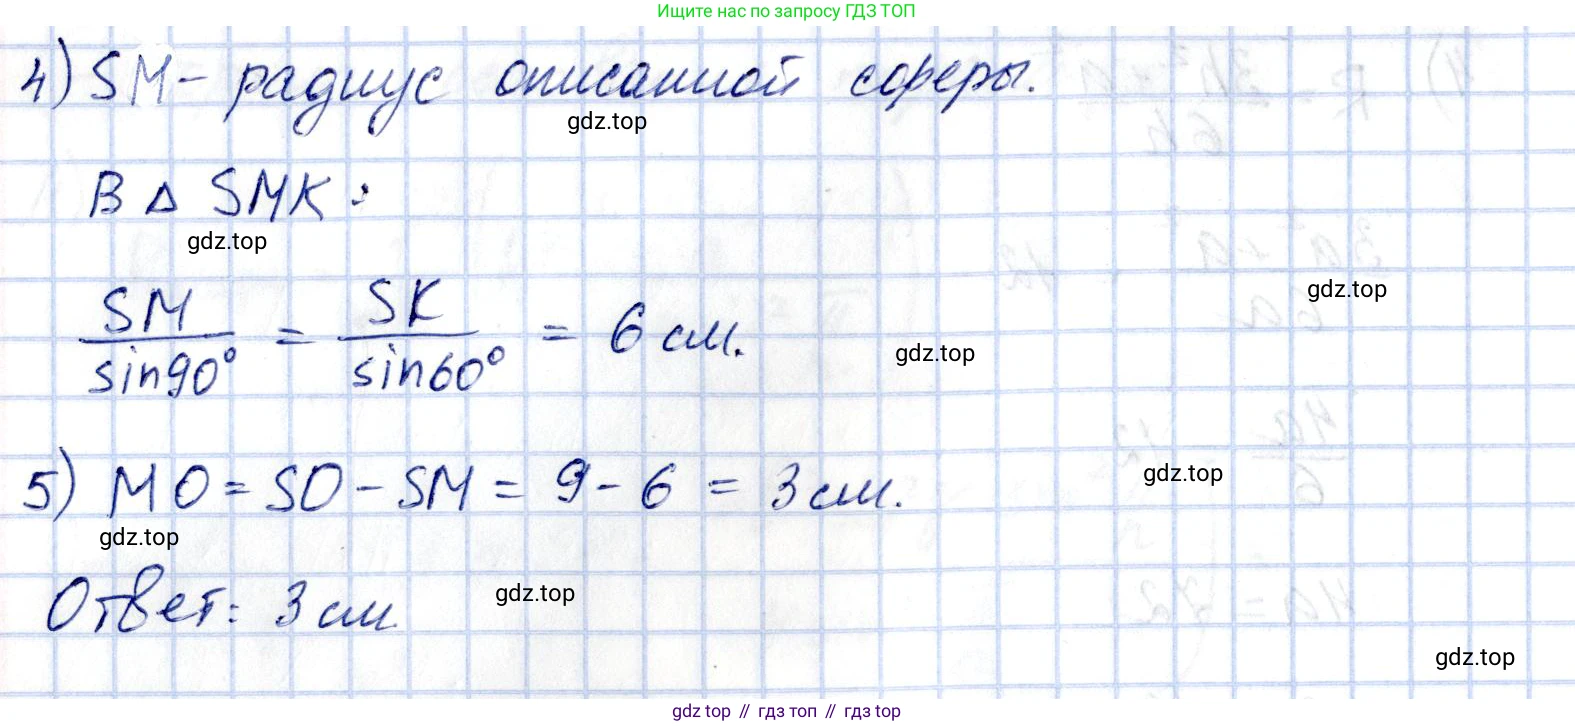 Ищите нас по запросу ГДЗ ТОП
4) SM - радиус описанной сферы.
gdz.top
В Δ SMK:
gdz.top
gdz.top
SM/sin90° = SK/sin60° = 6 см.
gdz.top
5) MO = SO - SM = 9 - 6 = 3 см.
gdz.top
gdz.top
Ответ: 3 см.
gdz.top
gdz.top
gdz.top // гдз топ // гдз top